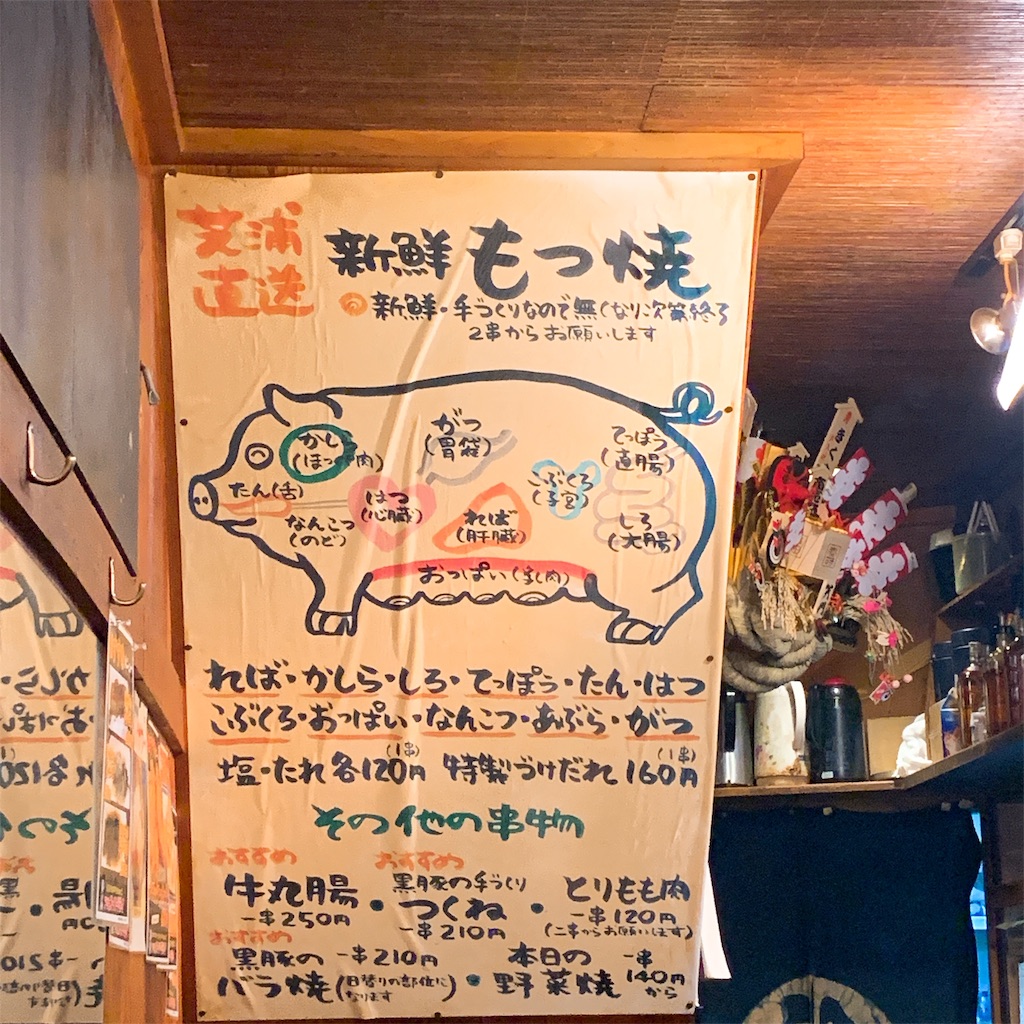 芝浦
直送
新鮮もつ焼
新鮮・手づくりなので無くなり次第終了
2串からお願いします
かしら
(ほっぺ肉)
がつ
(胃袋)
てっぽう
(直腸)
たん(舌)
はつ
(心臓)
こぶくろ
(子宮)
なんこつ
(のど)
れば
(肝臓)
しろ
(大腸)
おっぱい(乳肉)
れば・かしら・しろ・てっぽう・たん・はつ
こぶくろ・おっぱい・なんこつ・あぶら・がつ
塩・たれ各120円(1串) 特製づけだれ160円(1串)
その他の串物
おすすめ
牛丸腸
一串250円
おすすめ
黒豚の手づくり
・つくね・
一串210円
とりもも肉
一串120円
(二串からお願いします)
おすすめ
黒豚の 一串210円
バラ焼(日替りの部位になります)
・本日の野菜焼
一串
140円
から